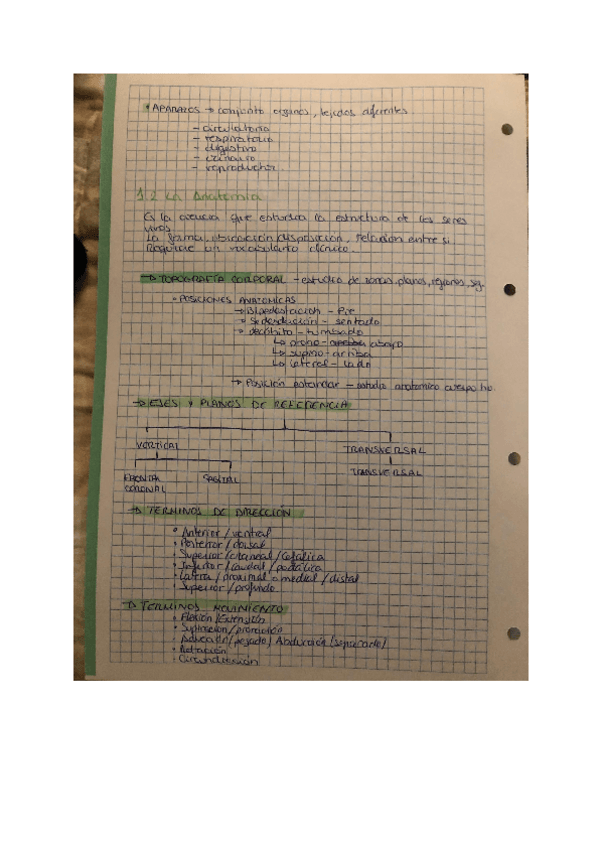 • APARATOS → conjunto organos, tejidos diferentes
- circulatorio
- respiratorio
- digestivo
- urinario
- reproductor.
1.2 La Anatomía
Es la ciencia que estudia la estructura de los seres
vivos.
La forma, ubicación, disposición, relacion entre si
Requiere un vocabulario clínico.
→ TOPOGRAFÍA CORPORAL - estudio de zonas, planos, regiones,
• POSICIONES ANATOMICAS
→ Bipedestación - Pie
→ Sedestación - sentado
→ decúbito - tumbado
↳ prono - abajo
↳ supino - arriba
↳ lateral - lado
→ Posición estandar - estudio anatomico cuerpo
→ EJES Y PLANOS DE REFERENCIA
VERTICAL TRANSVERSAL
FRONTAL SAGITAL TRANSVERSAL
CORONAL
→ TERMINOS DE DIRECCIÓN
• Anterior / ventral
• Posterior / dorsal
• Superior / craneal / cefálica
• Inferior / caudal / podálica
• Lateral / proximal o medial / distal
• Superior / profundo
→ TERMINOS MOVIMIENTO
• Flexión / Extensión
• Supinación / pronación
• Aducción (pegado) Abducción (separado)
• Rotación
• Circunducción